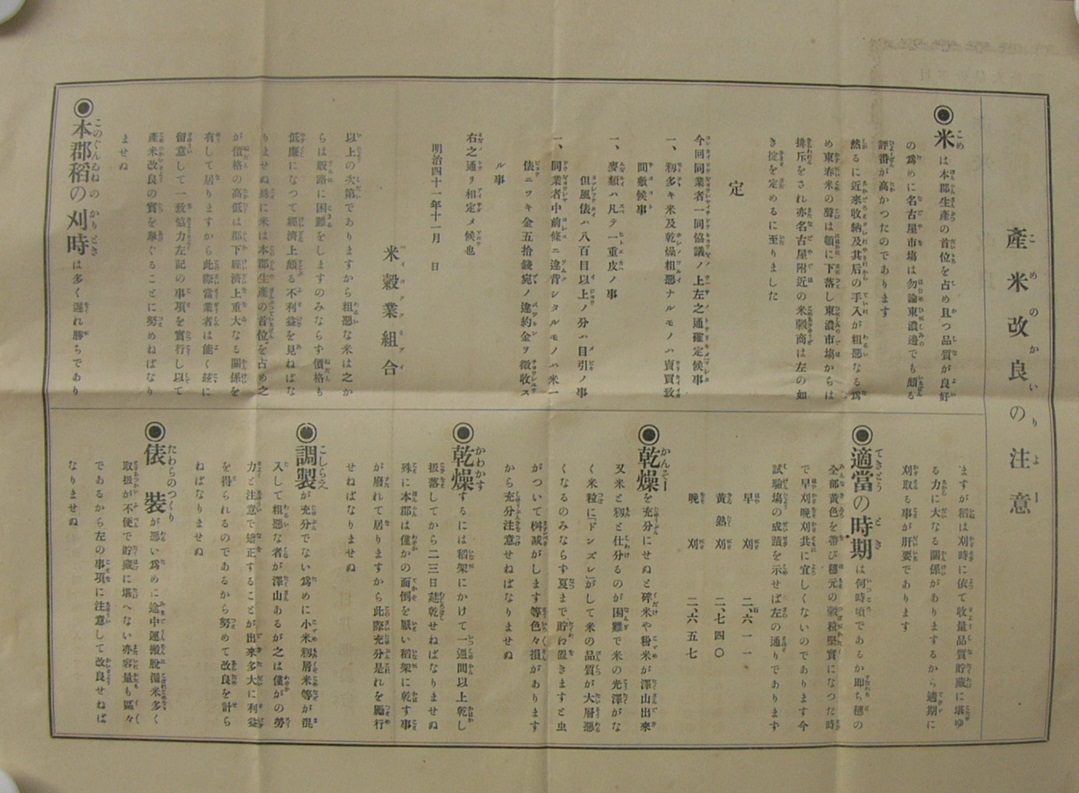 產米改良の注意
◉米は本郡生產の首位を占め且つ品質が良好
の爲めに名古屋市塲は勿論東濃邊でも頗る
評番が高かつたのであります
然るに近來收納及其后の手入が粗惡なる爲
め東春米の聲は頓に下落し東濃市塲からは
排斥をされ亦名古屋附近の米穀商は左の如
き掟を定めるに至りました
定
今回同業者一同協議ノ上左之通確定候事
一、籾多キ米及乾燥粗惡ナルモノハ賣買致
間敷候事
一、麥類ハ凡テ一重皮ノ事
但風俵ハ八百目以上ノ分ハ目引ノ事
一、同業者中前條ニ違背シタルモノハ米一
俵ニツキ金五拾錢宛ノ違約金ヲ徵收ス
ル事
右之通リ相定メ候也
明治四十一年十一月 日
米穀業組合
以上の次第でありますから粗惡な米は之か
らは販路に困難をしますのみならす價格も
低廉になつて經濟上頗る不利益を見ねばな
りませぬ爲に米は本郡生產の首位を占め之
が價格の高低は郡下經濟上重大なる關係を
有して居りますから此際當業者は能く茲に
留意して一致協力左記の事項を實行し以て
產米改良の實を擧ぐることに努めねばなり
ませぬ
◉本郡稻の刈時は多く遲れ勝ちであり
ますが稻は刈時に依て收量品質貯藏に堪ゆ
る力に大なる關係がありまするから適期に
刈取る事が肝要であります
◉適當の時期は何時頃であるか即ち穗の
全部黃色を帶び穗元の穀粒堅實になつた時
で早刈晚刈共に宜しくないのであります今
試驗塲の成蹟を示せば左の通りであります
早刈 二、六一一
黃熟刈 二、七四〇
晚刈 二、六五七
◉乾燥を充分にせぬと碎米や粉米が澤山出來
又米と籾と仕分るのが困難で米の光澤がな
く米粒に「ドンズレ」がして米の品質が大層惡
くなるのみならず夏まで貯は置きますと虫
がついて桝減がします等色々損があります
から充分注意せねばなりませぬ
◉乾燥するには稻架にかけて一週間以上乾し
扱落してから二三日莚乾せねばなりませぬ
殊に本郡は僅かの面倒を厭い稻架に乾す事
が廢れて居りますから此際充分是れを勵行
せねばなりませぬ
◉調製が充分でない爲めに小米籾屑米等が混
入して粗惡な者が澤山あるが之は僅がの勞
力と注意で矯正することが出來多大に利益
を得られるのであるから努めて改良を計ら
ねばなりませぬ
◉俵裝が惡い爲めに途中運搬脫漏米多く
取扱が不便で貯藏に堪へない亦容量も區々
であるから左の事項に注意して改良せねば
なりませぬ